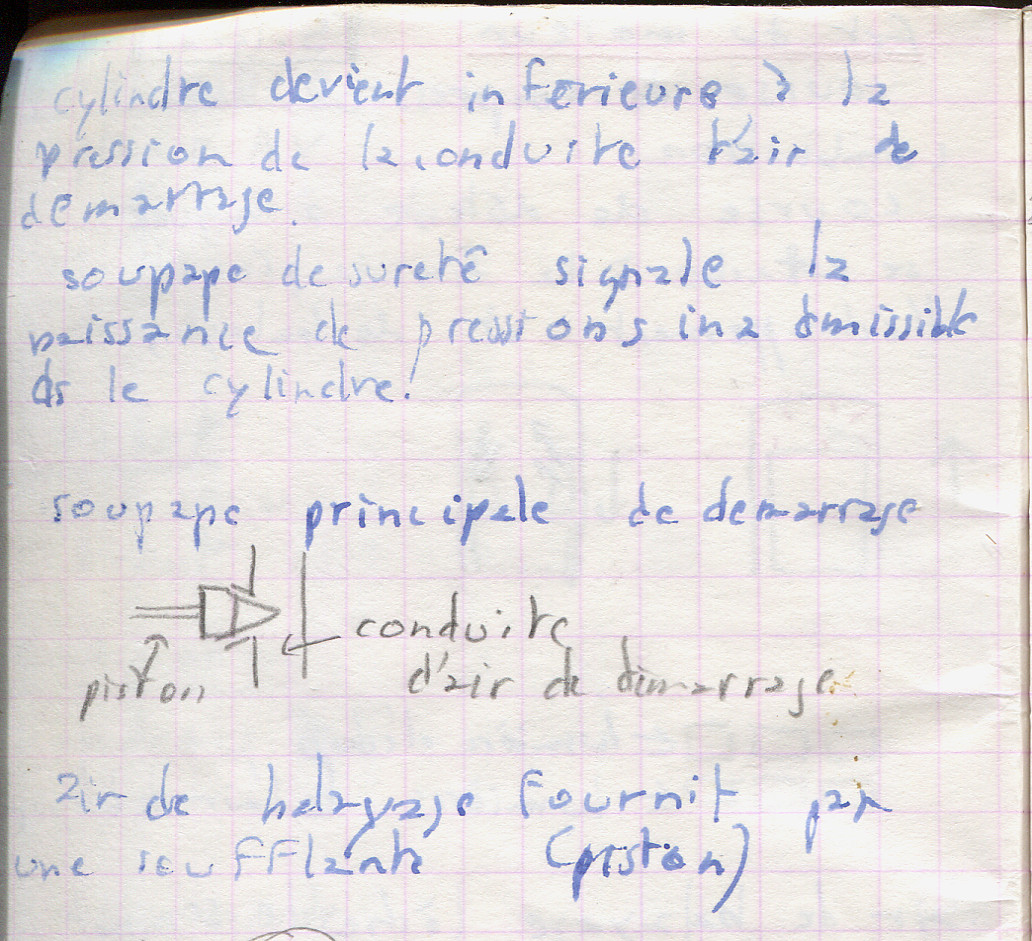 cylindre devient inferieure à la
pression de la conduite d'air de
demarrage.
soupape de sureté signale la
naissance de pressions inadmissible
ds le cylindre!
soupape principale de demarrage
conduite
piston d'air de démarrage
air de balayage fournit par
une soufflante (piston)